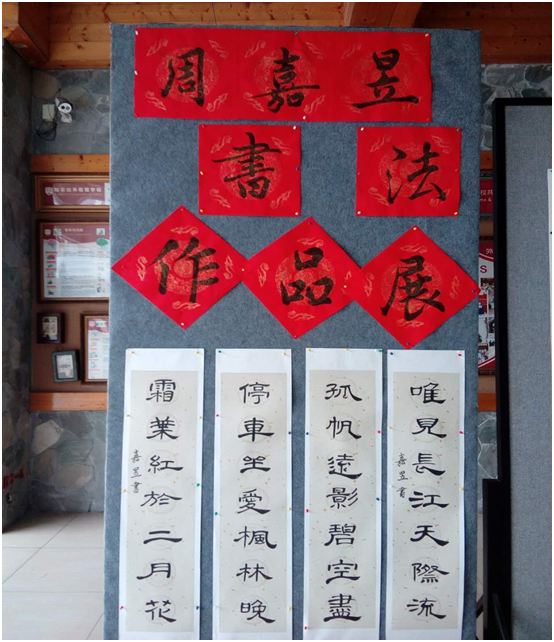 周嘉昱
書法
作品展
唯見長江天際流
嘉昱書
孤帆遠影碧空盡
停車坐愛楓林晚
霜葉紅於二月花
嘉昱書